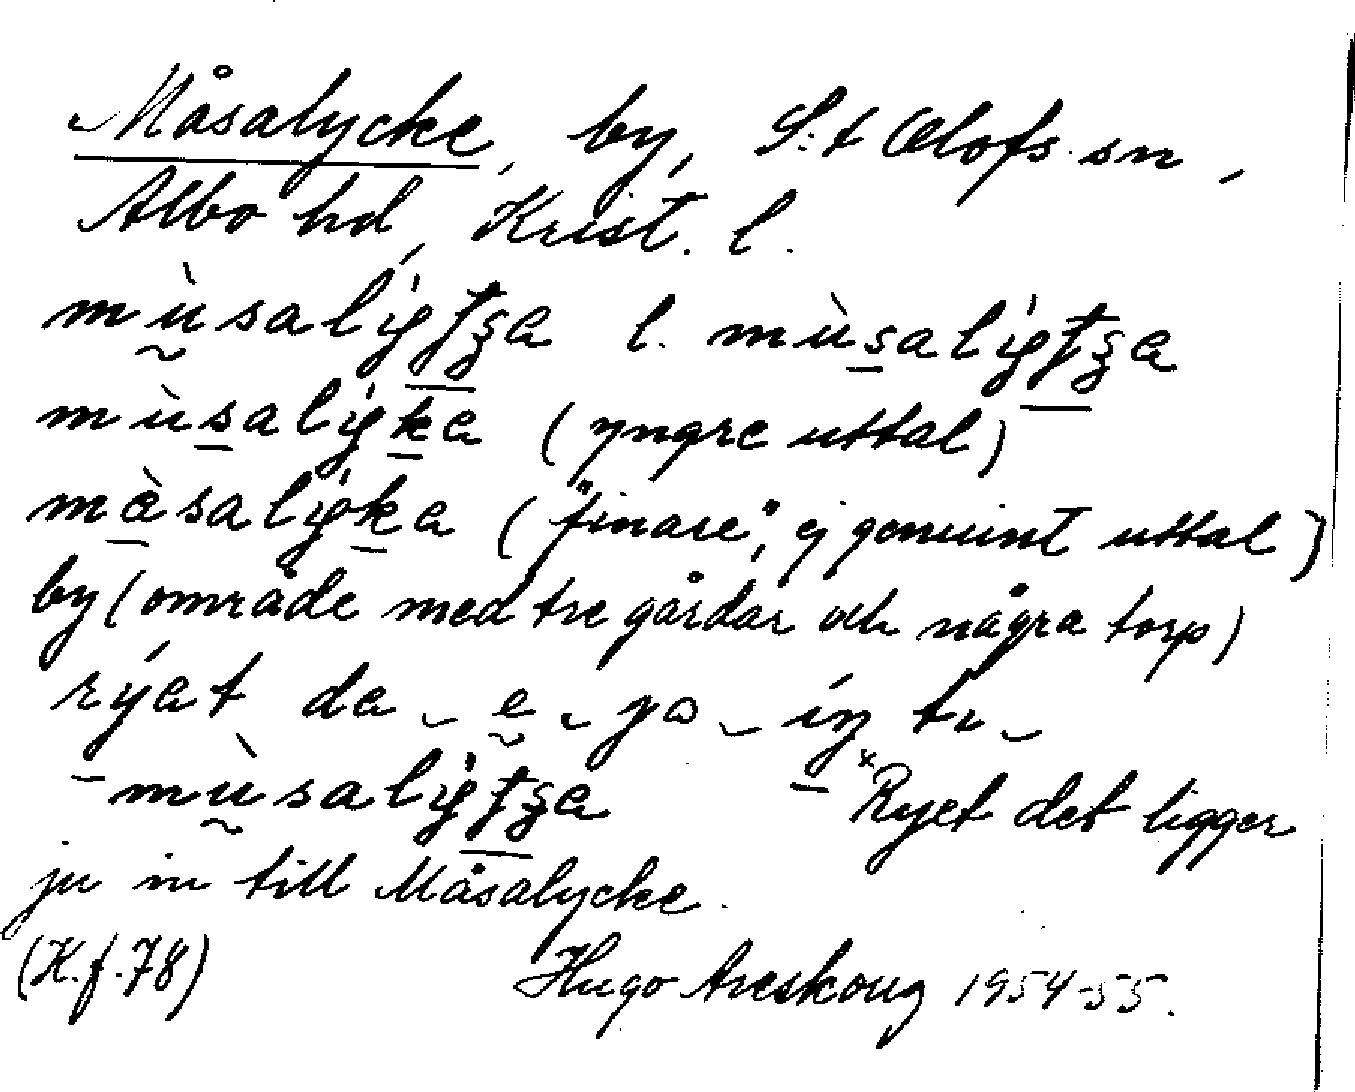 Måsalycke, by, S:t Olofs sn,
Albo hd, Krist. l.
mùsalyţşa l. mùsalyţşa
mùsalyka (yngre uttal)
màsalyka ("finare", ej genuint uttal)
by (område med tre gårdar och några torp)
rýat da e yo in ti
mùsalyţşa *Ryet det ligger
ju in till Måsalycke.
(K.f.78) Hugo Areskoug 1954-55.